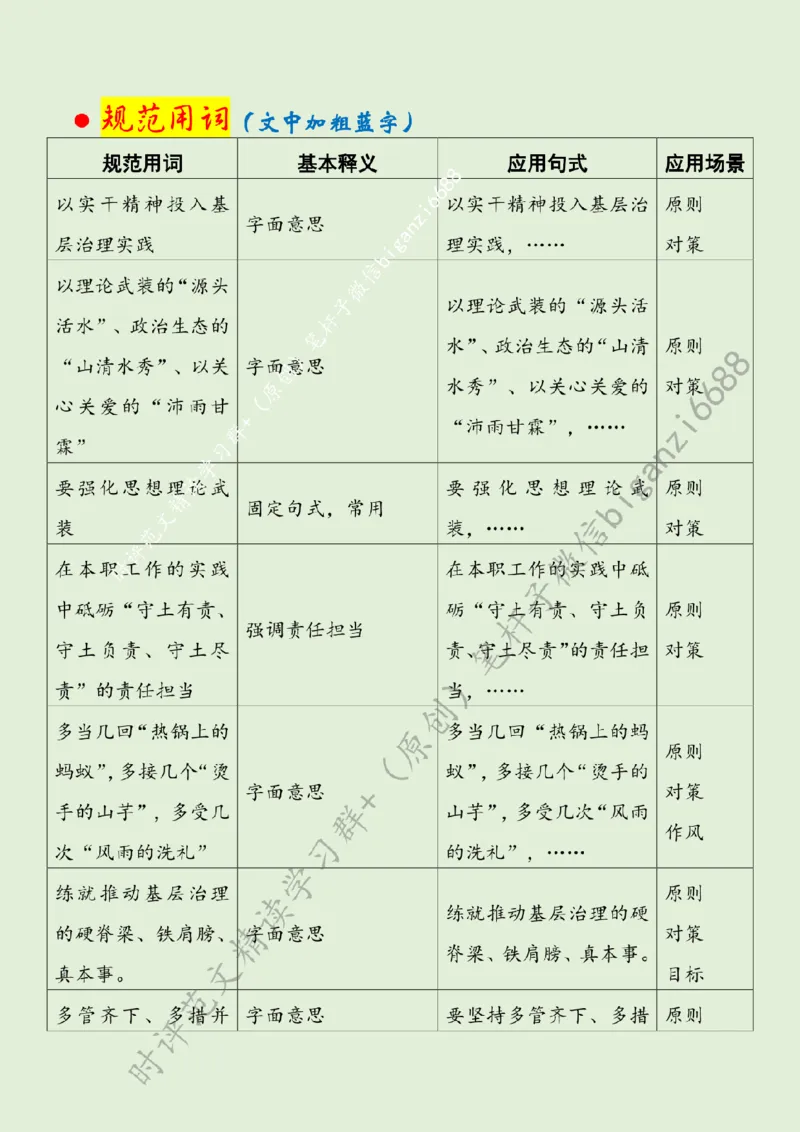 ● 规范用词（文中加粗蓝字）
规范用词 基本释义 应用句式 应用场景
以实干精神投入基
层治理实践
字面意思
以实干精神投入基层治
理实践，……
原则
对策
以理论武装的“源头
活水”、政治生态的
“山清水秀”、以关
心关爱的“沛雨甘
霖”
字面意思
以理论武装的“源头活
水”、政治生态的“山清
水秀”、以关心关爱的
“沛雨甘霖”，……
原则
对策
要强化思想理论武
装
固定句式，常用
要强化思想理论武
装，……
原则
对策
在本职工作的实践
中砥砺“守土有责、
守土负责、守土尽
责”的责任担当
强调责任担当
在本职工作的实践中砥
砺“守土有责、守土负
责、守土尽责”的责任担
当，……
原则
对策
多当几回“热锅上的
蚂蚁”，多接几个“烫
手的山芋”，多受几
次“风雨的洗礼”
字面意思
多当几回“热锅上的蚂
蚁”，多接几个“烫手的
山芋”，多受几次“风雨
的洗礼”，……
原则
对策
作风
练就推动基层治理
的硬脊梁、铁肩膀、
真本事。
字面意思
练就推动基层治理的硬
脊梁、铁肩膀、真本事。
原则
对策
目标
多管齐下、多措并
字面意思
要坚持多管齐下、多措
原则
时评范文精读学习群+（原创）笔杆子微信biganzi6688
时评范文精读学习群+（原创）笔杆子微信biganzi6688